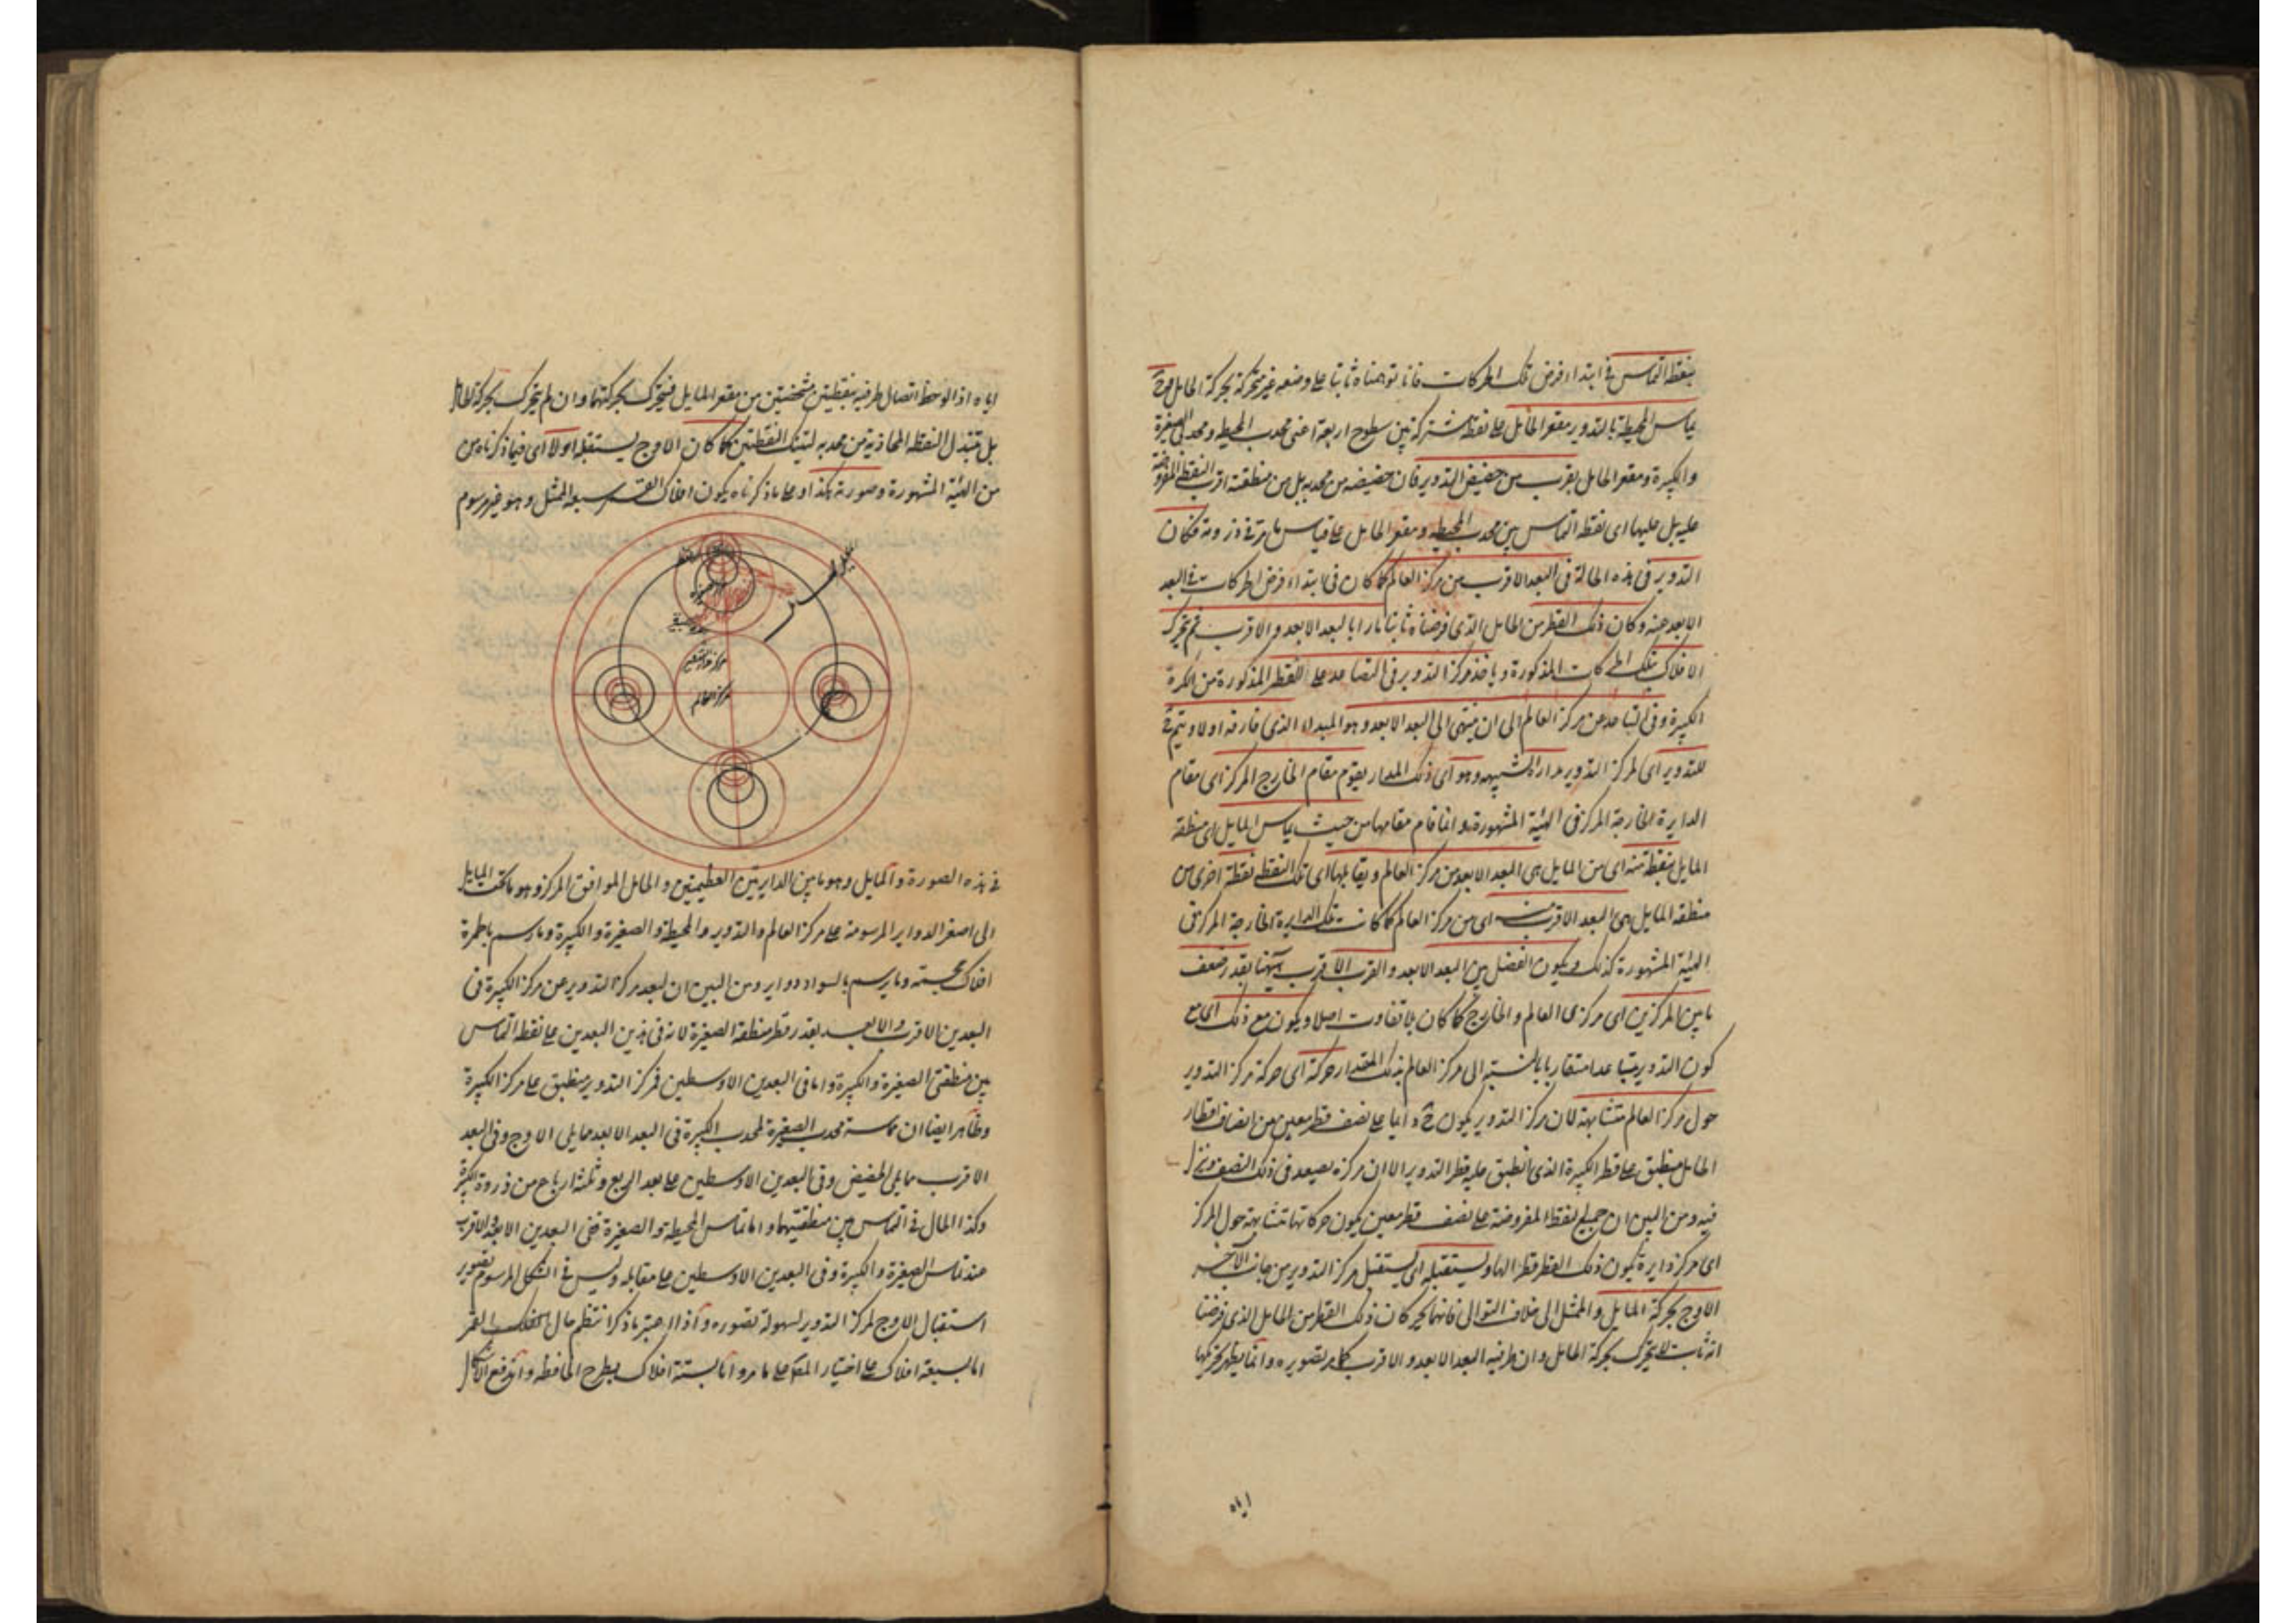 بنقطة التماس فى ابتداء فرض تلك الحركات فانا توهمناه ثابتا على وضعه غير متحركة بحركة الحامل فح
يماس المحيطة بالتدوير مقعر الحامل على نقطة مشتركة بين سطوح اربعة اعنى محدب المحيطة ومحدبى الصغيرة
والكبيرة ومقعر الحامل بقرب من حضيض التدوير فان حضيضه من محدبه بل من منطقته اقرب النقط المفروضة
عليه بل عليها اى نقطة التماس بين محدب المحيطة ومقعر الحامل على قياس ما مر فى ذروته فكان
التدوير فى هذه الحالة فى البعد الاقرب من مركز العالم كما كان فى ابتداء فرض الحركات فى البعد
الابعد عنه وكان ذلك القطر من الحامل الذى فرضناه ثابتا مارا بالبعد الابعد والاقرب ثم يتحرك
الافلاك بتلك الحركات المذكورة وياخذ مركز التدوير فى التصاعد على القطر المذكورة من الكرة
الكبيرة وفى التباعد عن مركز العالم الى ان ينتهى الى البعد الابعد وهو المبداء الذى فارقه اولا ويتم ح
للتدوير اى لمركز التدوير مدار شبيه وهو اى ذلك المدار يقوم مقام الخارج المركز اى مقام
الدايرة الخارجة المركز فى الهيئة المشهورة وانما قام مقامها من حيث يماس المايل اى منطقة
المايل بنقطة منه اى من المايل هى البعد الابعد من مركز العالم ويقابلها اى تلك النقطة نقطة اخرى من
منطقة المايل هى البعد الاقرب منه اى من مركز العالم كما كانت تلك الدايرة الخارجة المركز فى
الهيئة المشهورة كذلك ويكون الفضل بين البعد الابعد والقرب الاقرب ههنا بقدر ضعف
ما بين المركزين اى مركزى العالم والخارج كما كان بلا تفاوت اصلا ويكون مع ذلك اى مع
كون التدوير متباعدا متقاربا بالنسبة الى مركز العالم بذلك المقدار حركة اى حركة مركز التدوير
حول مركز العالم متشابهة لان مركز التدوير يكون ح دايما على نصف قطر معين من انصاف اقطار
الحامل منطبق على قطر الكبيرة الذى انطبق عليه قطر التدوير الا ان مركزه يصعد فى ذلك النصف وينزل
فيه ومن البين ان جميع النقط المفروضة على نصف قطر معين يكون حركاتها متشابهة حول المركز
اى مركز دايرة يكون ذلك القطر قطرا لها ويستقبله اى يستقبل مركز التدوير من جانب الآخر
الاوج بحركة المايل والممثل الى خلاف التوالى فانهما يحركان ذلك القطر من الحامل الذى فرضنا
انه ثابت لا يتحرك بحركة الحامل وان طرفيه البعد الابعد والاقرب كما مر تصويره وانما يظهر تحريكهما
اياه
اياه اذا لوحظ اتصال طرفيه بنقطتين مشخصتين من مقعر المايل فيتحرك بحركتهما وان لم يتحرك بحركة الحامل
بل تتبدل النقطة المحاذية من محدبه لتينك النقطتين كما كان الاوج يستقبله اولا اى فيما ذكرناه من
من الهيئة المشهورة وصورته هكذا وعلى ما ذكرناه يكون افلاك القمر سبعة الممثل وهو غير مرسوم
مركز العالم
فى هذه الصورة والمايل وهو ما بين الدايرتين العظيمتين والحامل الموافق المركز وهو ما تحت المايل
الى اصغر الدواير المرسومة على مركز العالم والتدوير والمحيطة والصغيرة والكبيرة وما رسم بالحمرة
افلاك مجسمة وما رسم بالسواد دواير ومن البين ان بعد مركز التدوير عن مركز الكبيرة فى
البعدين الاقرب والابعد بقدر قطر منطقة الصغيرة لانه فى هذين البعدين على نقطة التماس
بين منطقتى الصغيرة والكبيرة واما فى البعدين الاوسطين فمركز التدوير منطبق على مركز الكبيرة
وظاهر ايضا ان مماسة محدب الصغيرة لمحدب الكبيرة فى البعد الابعد مما يلى الاوج وفى البعد
الاقرب مما يلى الحضيض وفى البعدين الاوسطين على بعد الربع وثلثة ارباع من ذروة الكبيرة
وكذا الحال فى التماس بين منطقتيهما واما تماس المحيطة والصغيرة ففى البعدين الابعد والاقرب
عند تماس الصغيرة والكبيرة وفى البعدين الاوسطين على مقابله وليس فى الشكل المرسوم تصوير
استقبال الاوج لمركز التدوير لسهولة تصوره واذا اعتبر ما ذكر انتظم حال فلك القمر
اما بسبعة افلاك على اختيار المص على ما مر واما بستة افلاك بطرح الحافظة واندفع الاشكال